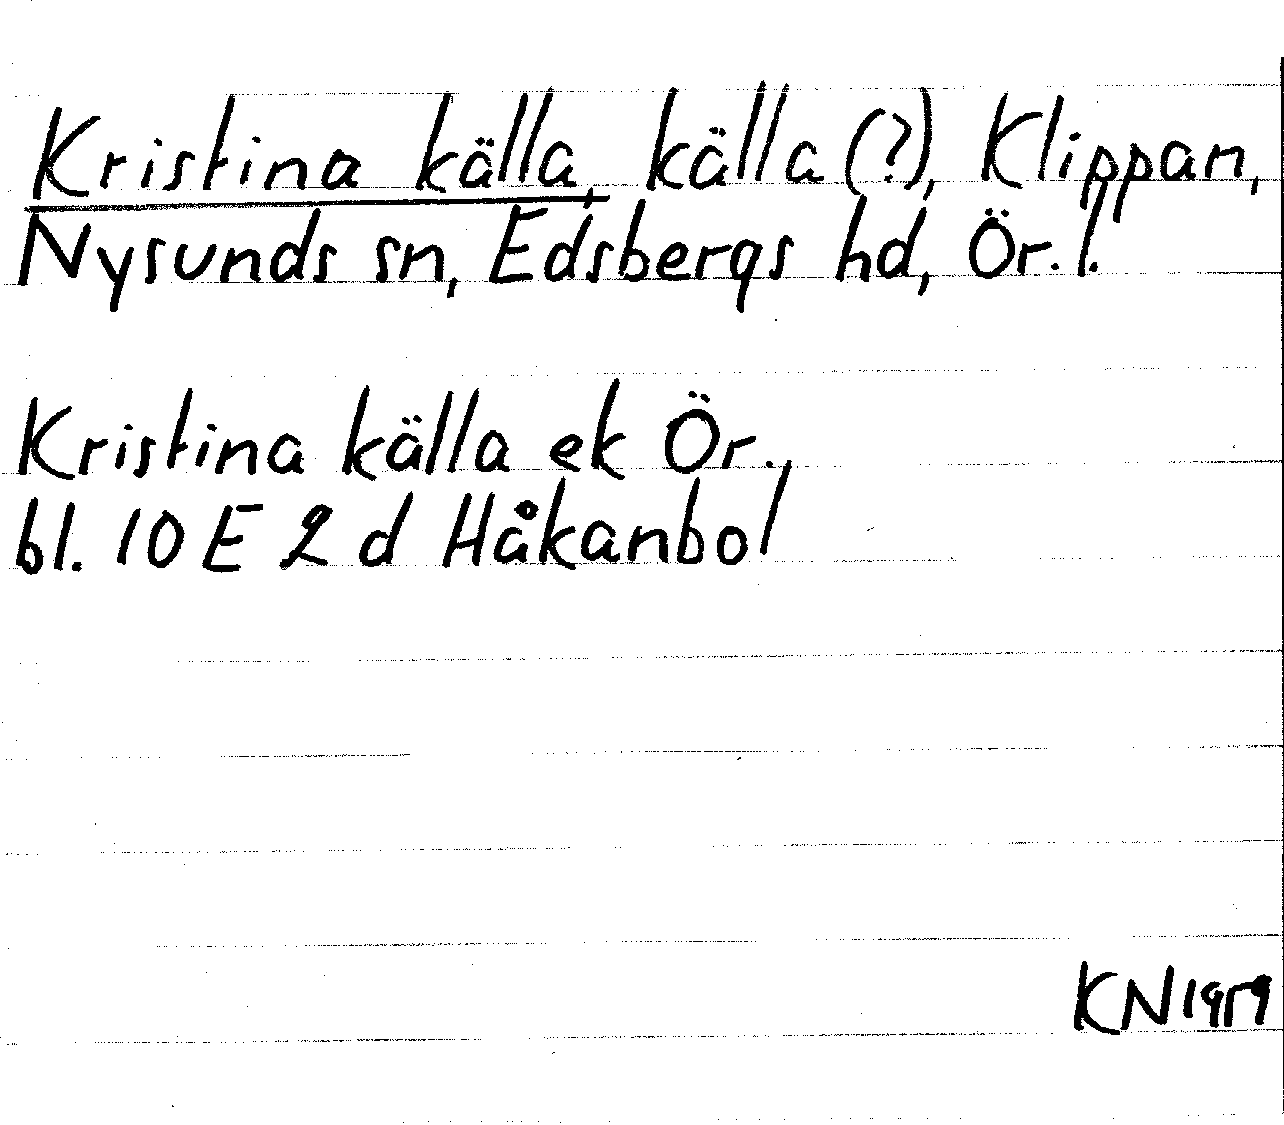 Kristina källa, källa (?), Klippan,
Nysunds sn, Edsbergs hd, Ör. l.
Kristina källa ek Ör.,
bl. 10 E 2 d Håkanbol
KN 1959